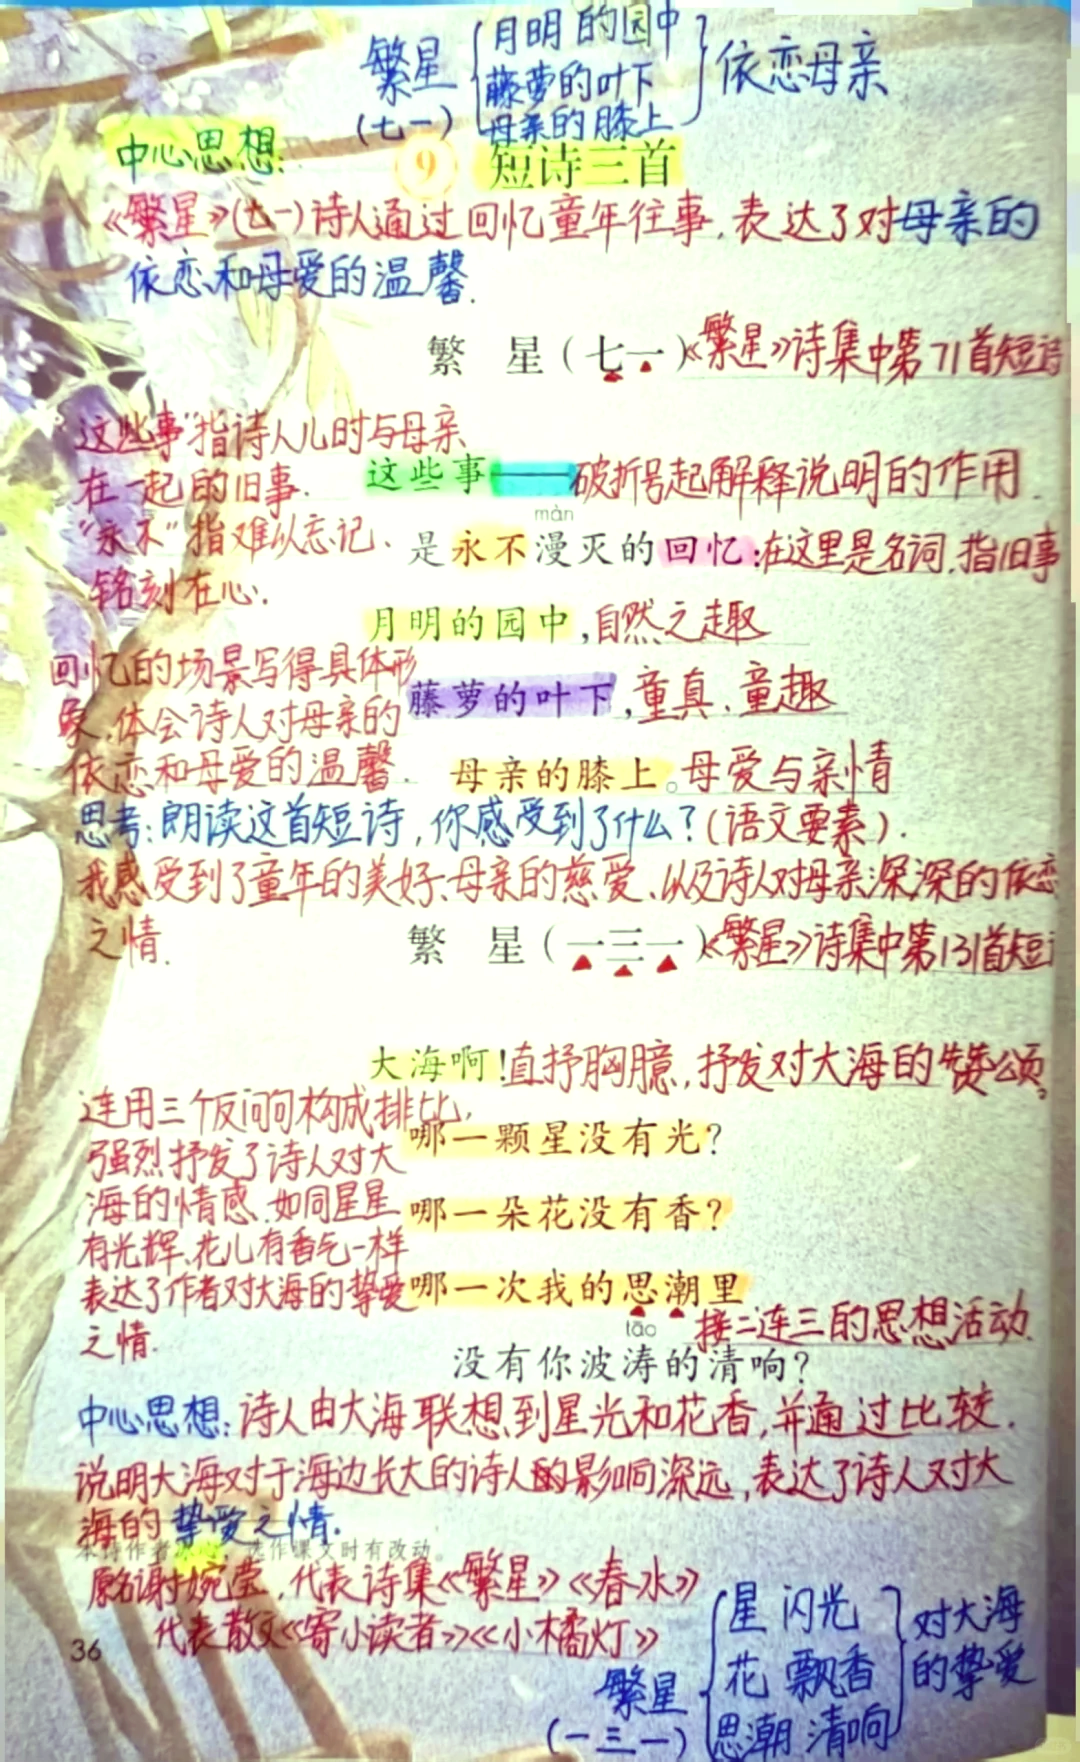 繁星
(七一)
月明的园中
藤萝的叶下
母亲的膝上
依恋母亲
中心思想:
9 短诗三首
《繁星》(七一)诗人通过回忆童年往事,表达了对母亲的
依恋和母爱的温馨.
繁 星(七一)《繁星》诗集中第71首短诗
“这些事”指诗人儿时与母亲
在一起的旧事.
这些事——破折号起解释说明的作用.
màn
“永不”指难以忘记、
铭刻在心.
是永不漫灭的回忆:在这里是名词,指旧事
月明的园中,自然之趣
回忆的场景写得具体形
象,体会诗人对母亲的
依恋和母爱的温馨.
藤萝的叶下,童真、童趣
母亲的膝上。母爱与亲情
思考:朗读这首短诗,你感受到了什么?(语文要素).
我感受到了童年的美好、母亲的慈爱、以及诗人对母亲深深的依恋
之情.
繁 星(一三一)《繁星》诗集中第131首短
大海啊!直抒胸臆,抒发对大海的赞颂。
连用三个反问句构成排比,
强烈抒发了诗人对大
海的情感.如同星星
有光辉、花儿有香气一样
表达了作者对大海的挚爱
之情.
哪一颗星没有光?
哪一朵花没有香?
哪一次我的思潮里
接二连三的思想活动.
tāo
没有你波涛的清响?
中心思想:诗人由大海联想到星光和花香,并通过比较.
说明大海对于海边长大的诗人的影响深远,表达了诗人对大
海的挚爱之情.
本诗作者冰心,选作课文时有改动。
原名谢婉莹,代表诗集《繁星》《春水》
代表散文《寄小读者》《小橘灯》
36
繁星
(一三一)
星 闪光
花 飘香
思潮 清响
对大海
的挚爱